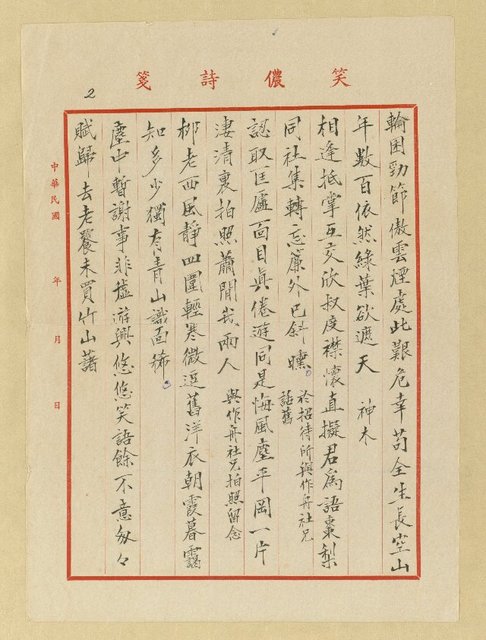 笑儂詩箋
2
輪囷勁節傲雲煙處此艱危幸苟全生長空山
年數百依然綠葉欲遮天　神木
相逢抵掌互交欣叔度襟懷直擬君為語棗梨
同社集轉忘簾外已斜曛。於招待所與作舟社兄話舊
認取匡廬面目眞倦游同是悔風塵平岡一片
淒清裏拍照蕭閒我兩人　與作舟社兄拍照留念
柳老西風靜四圍輕寒微逗舊洋衣朝霞暮靄
知多少獨有青山識面稀。
塵世暫謝事非虛游興悠悠笑語餘不意匆々
賦歸去老饕未買竹山藷
中華民國　年　月　日